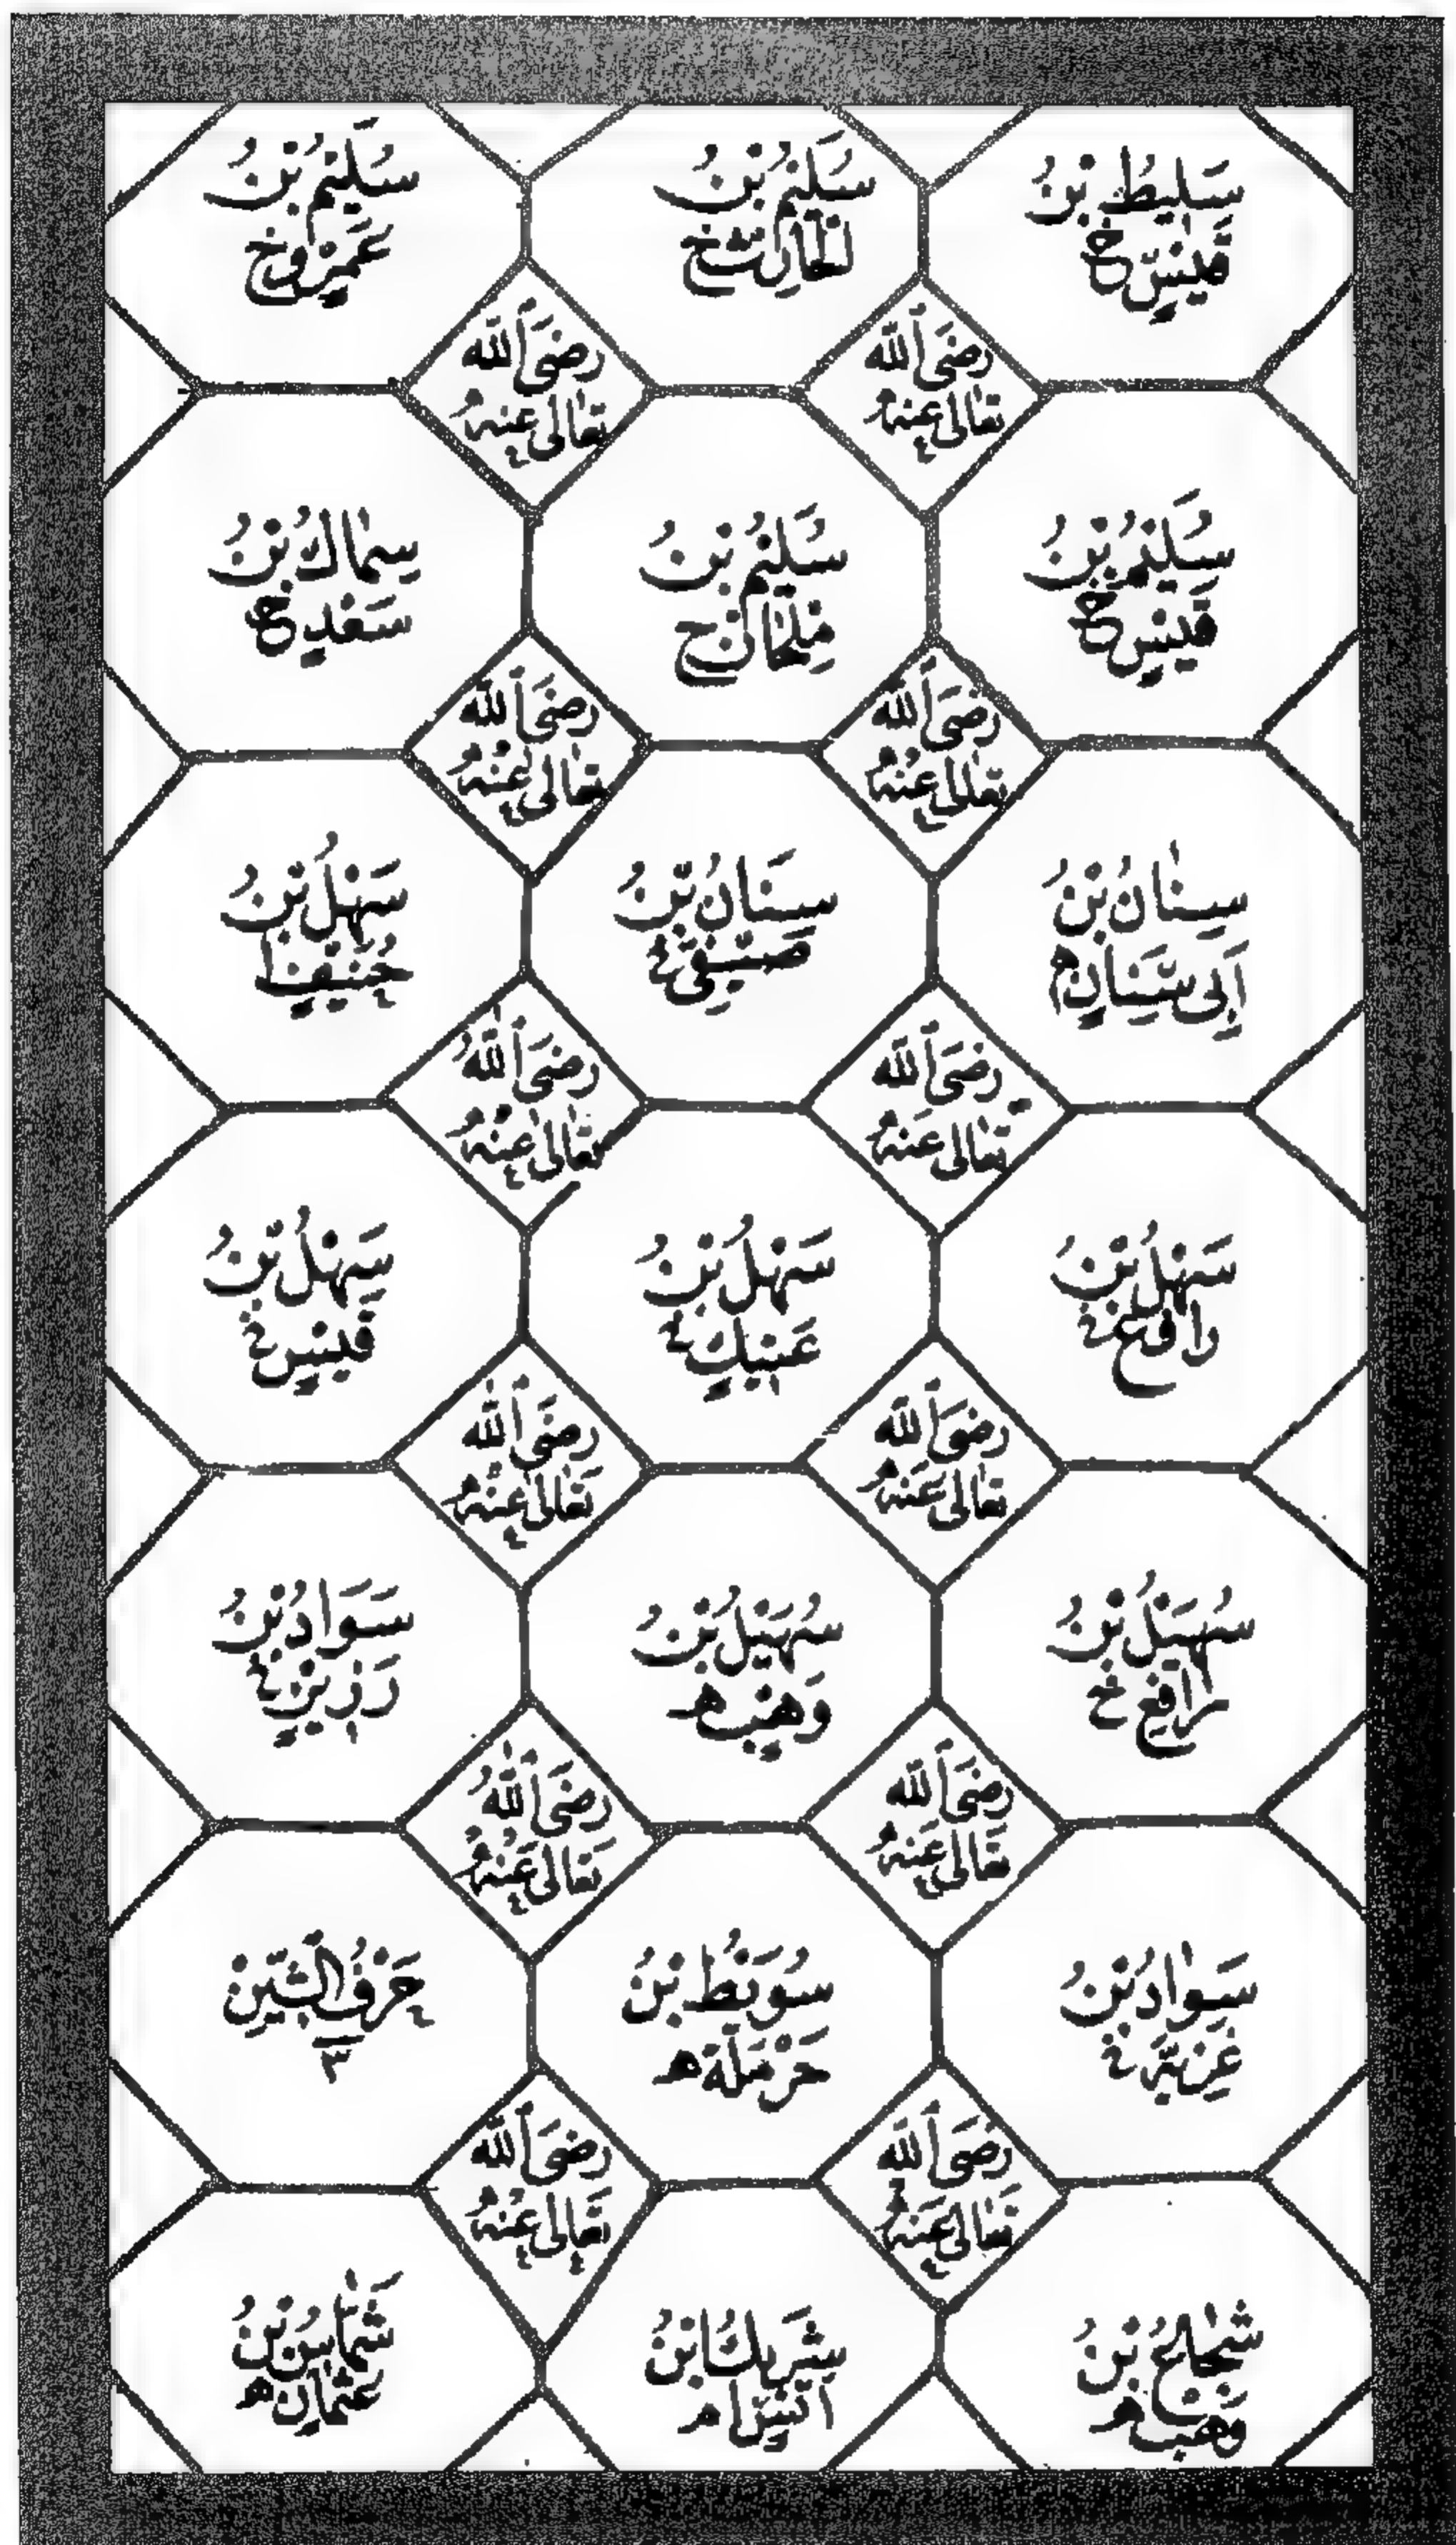 سَلِيطُ بْنُ
قَيْسٍ خ
سُلَيْمُ بْنُ
الْحَارِثِ خ
سُلَيْمُ بْنُ
عَمْرٍو خ
رَضِيَ اللّٰه
تَعَالٰى عَنْهُ
رَضِيَ اللّٰه
تَعَالٰى عَنْهُ
سُلَيْمُ بْنُ
قَيْسٍ خ
سُلَيْمُ بْنُ
مِلْحَانَ خ
سِمَاكُ بْنُ
سَعْدٍ خ
رَضِيَ اللّٰه
تَعَالٰى عَنْهُ
رَضِيَ اللّٰه
تَعَالٰى عَنْهُ
سِنَانُ بْنُ
اَبِي سِنَانٍ م
سِنَانُ بْنُ
صَيْفِيّ خ
سَهْلُ بْنُ
حُنَيْفٍ ا
رَضِيَ اللّٰه
تَعَالٰى عَنْهُ
رَضِيَ اللّٰهُ
تَعَالٰى عَنْهُ
سَهْلُ بْنُ
رَافِعٍ خ
سَهْلُ بْنُ
عَتِيكٍ خ
سَهْلُ بْنُ
قَيْسٍ خ
رَضِيَ اللّٰه
تَعَالٰى عَنْهُ
رَضِيَ اللّٰه
تَعَالٰى عَنْهُ
سُهَيْلُ بْنُ
رَافِعٍ خ
سُهَيْلُ بْنُ
وَهْبٍ م
سَوَادُ بْنُ
رَزِيْنٍ خ
رَضِيَ اللّٰه
تَعَالٰى عَنْهُ
رَضِيَ اللّٰهُ
تَعَالٰى عَنْهُ
سَوَادُ بْنُ
غَزِيَّةَ خ
سُوَيْبِطُ بْنُ
حَرْمَلَةَ م
حَرْفُ الشِّيْنِ
٣
رَضِيَ اللّٰه
تَعَالٰى عَنْهُ
رَضِيَ اللّٰه
تَعَالٰى عَنْهُ
شُجَاعُ بْنُ
وَهْبٍ م
شَرِيكُ بْنُ
اَنَسٍ ا م
شَمَّاسُ بْنُ
عُثْمَانَ م